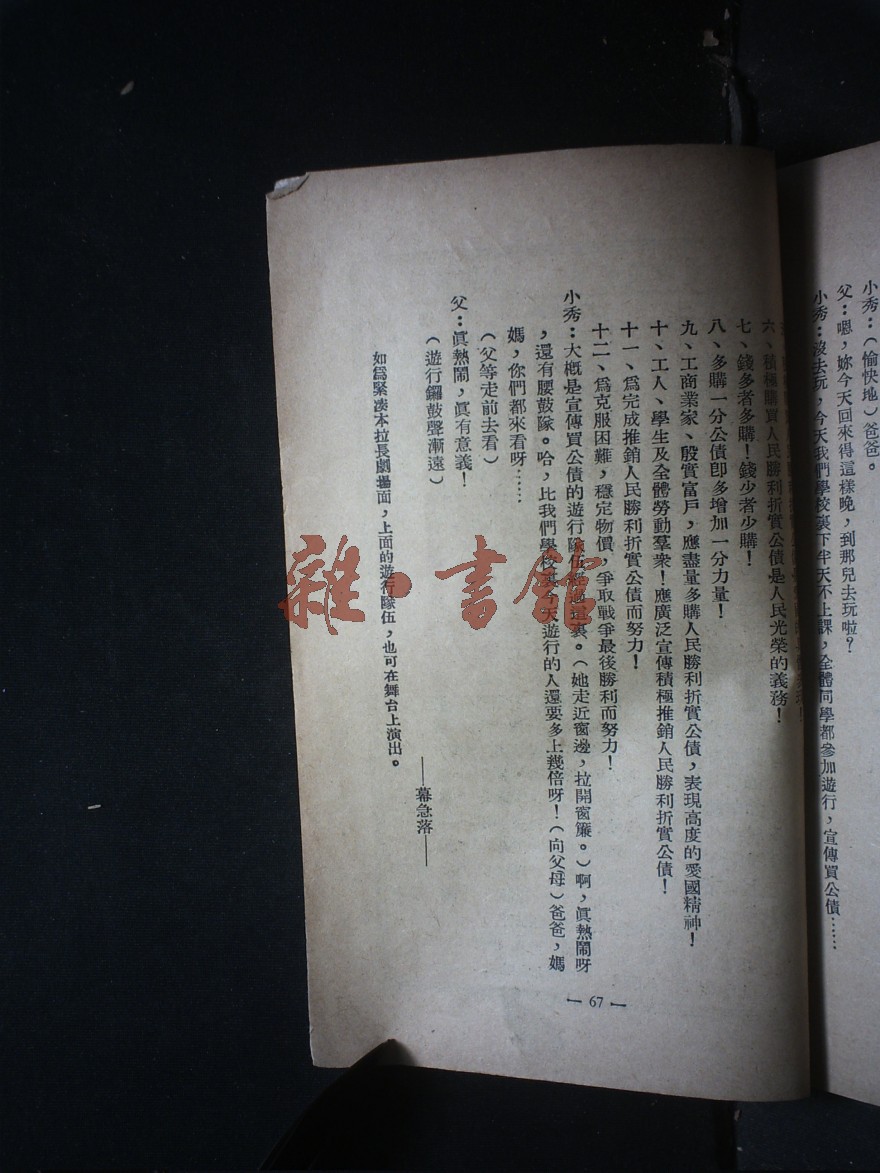 小秀：（愉快地）爸爸。
父：嗯，妳今天回來得這樣晚，到那兒去玩啦？
小秀：沒去玩，今天我們學校裏下半天不上課，全體同學都參加遊行，宣傳買公債……
六、積極購買人民勝利折實公債是人民光榮的義務！
七、錢多者多購！錢少者少購！
八、多購一分公債卽多增加一分力量！
九、工商業家、殷實富戶，應盡量多購人民勝利折實公債，表現高度的愛國精神！
十、工人、學生及全體勞動羣衆！應廣泛宣傳積極推銷人民勝利折實公債！
十一、爲完成推銷人民勝利折實公債而努力！
十二、爲克服困難，穩定物價，爭取戰爭最後勝利而努力！
小秀：大槪是宣傳買公債的遊行隊伍經過這裏。（她走近窗邊，拉開窗簾。）啊，眞熱鬧呀
，還有腰鼓隊。哈，比我們學校裏今天遊行的人還要多上幾倍呀！（向父母）爸爸，媽
媽，你們都來看呀……
（父等走前去看）
父：眞熱鬧，眞有意義！
（遊行鑼鼓聲漸遠）
——幕急落——
如爲緊湊本拉長劇場面，上面的遊行隊伍，也可在舞台上演出。
— 67 —
雜·書館